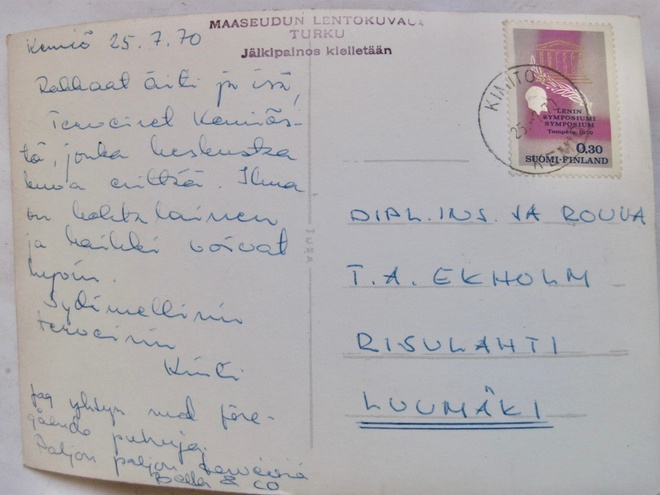 MAASEUDUN LENTOKUVAUS
TURKU
Jälkipainos kielletään
Kemiö 25.7.70
Rakkaat äiti ja isä,
Terveiset Kemiös-
tä, jonka keskusta
kuva esittää. Ilma
on
ja kaikki voivat
hyvin.
Sydämellisin
terveisin
Jag yhtyn med före-
gående puhuja.
Paljon paljon terveisiä
& CO
KIMITO
25
KEMIÖ
LENIN
SYMPOSIUMI
SYMPOSIUM
Tampere 1970
0.30
SUOMI-FINLAND
DIPL.INS. JA ROUVA
T.A. EKHOLM
RISULAHTI
LUUMÄKI